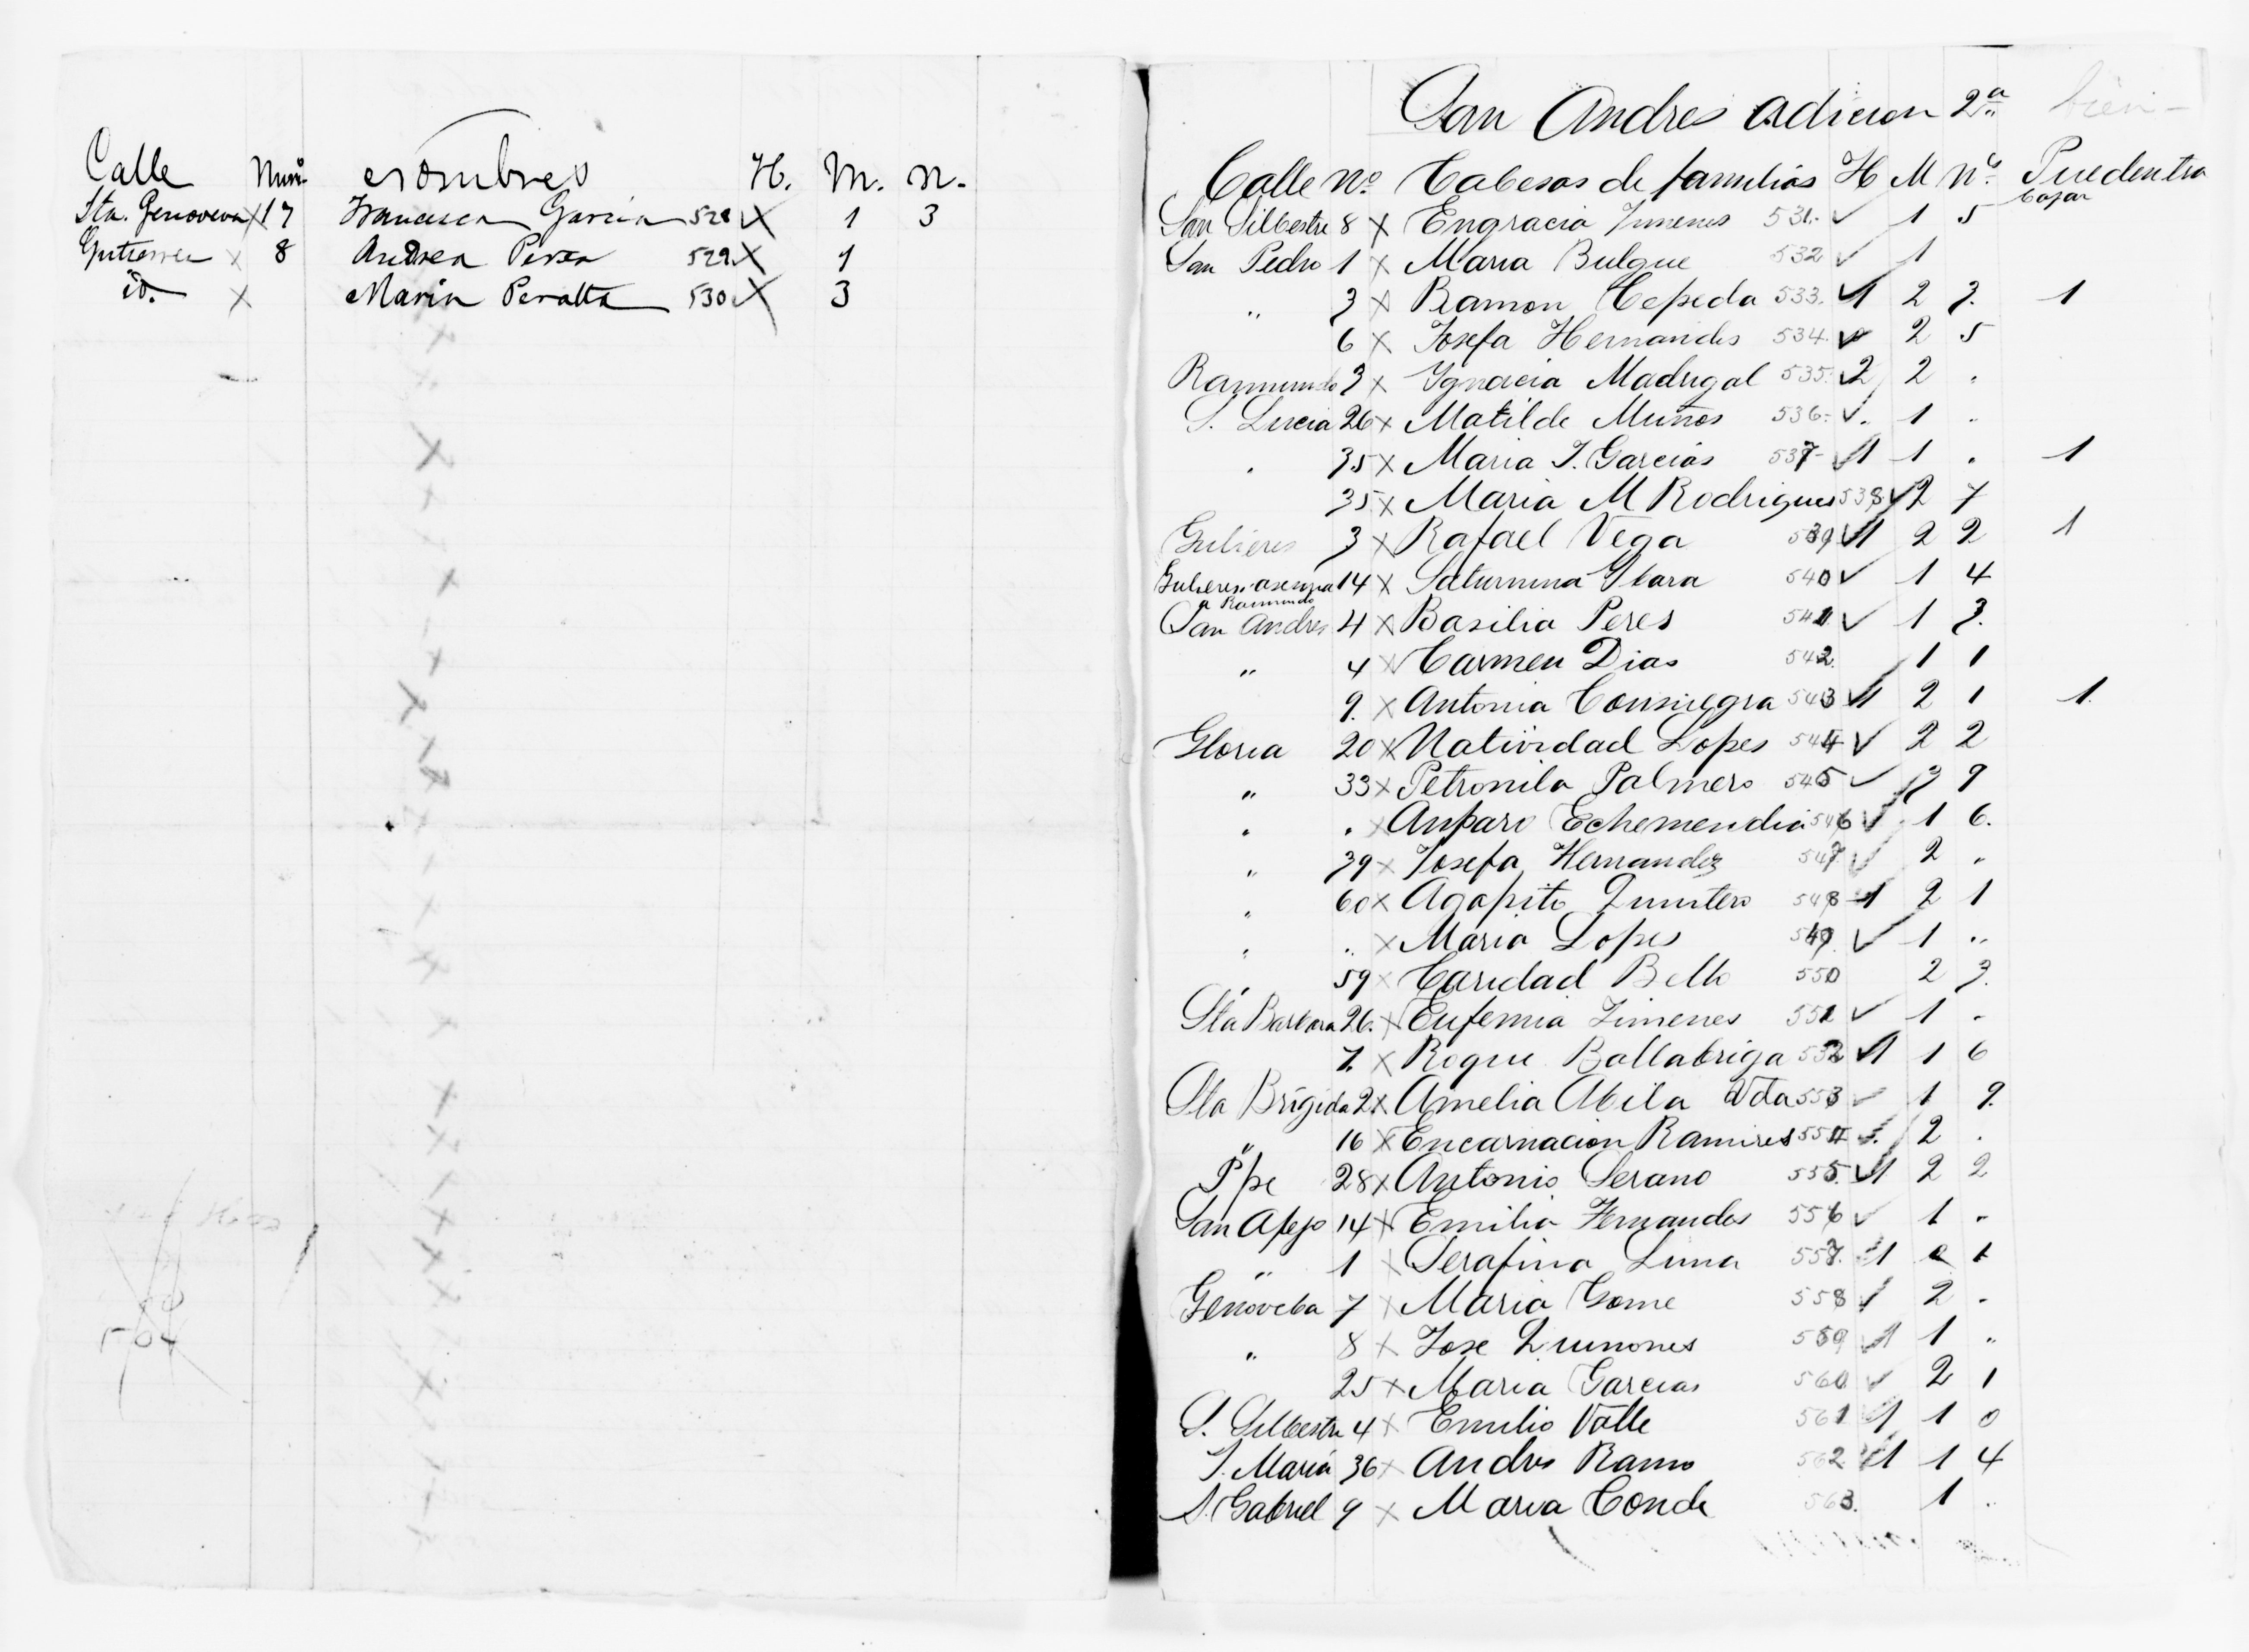 Calle Num. Nombres H. M. N.
Sta. Genoveva 17 Francisca Garcia 528 1 3
Gutierrez 8 Andrea Perez 529 1
id. Maria Peralta 530 3
504
San Andres adicion 2ª
Calle Nº Cabesas de familias H M N. Pueden tra
bajar
San Silbestre 8 x Engracia Jimenes 531 1 5
San Pedro 1 x Maria Bulgue 532 1
" 3 x Ramon Cepeda 533. 1 2 3. 1
6 x Josefa Hernandes 534. 2 5
Raimundo 3 x Ygnacia Madrigal 535. 2 2 .
S. Lucia 26 x Matilde Muños 536- 1 .
. 35 x Maria J. Garcias 537- 1 1 . 1
35 x Maria M Rodrigues 538 2 7
Gutieres 3 x Rafael Vega 539 1 2 2 1
Gutieres 14 x Saturnina Ybara 540 1 4
a Raimundo
San Andres 4 x Basilia Peres 541 1 3.
" 4 x Carmen Dias 542. 1 1
9. x Antonia Consuegra 543 1 2 1 1.
Gloria 20 x Natividad Lopes 544 2 2
" 33 x Petronila Palmero 545 3 9
" . x Anparo Echemendia 546 1 6.
" 39 x Josefa Hernandez 547. 2 "
" 60 x Agapito Quintero 548 1 2 1
" .. x Maria Lopes 549. 1 ..
" 59 x Caridad Bello 550 2 3.
Sta Barbara 26. x Eufemia Jimenes 551 1 -
7. x Roque Ballabriga 552 1 1 6
Sta Brigida 2. x Amelia Abila Vda 553 1 9.
" 16 x Encarnacion Ramires 554 2 .
Ppe 28 x Antonio Serano 555. 1 2 2
San Apejo 14 x Emilia Fernandes 556 1 -
" 1 x Serafina Luna 557. 1 2 1
Genoveba 7 x Maria Gome 558 2 -
" 8 x Jose Quinones 559 1 1 "
25 x Maria Garcias 560 2 1
S. Silbestre 4 x Emilio Valle 561 1 1 0
S. Maria 36 x Andres Ramo 562 1 1 4
S. Gabriel 9 x Maria Conde 563. 1 .